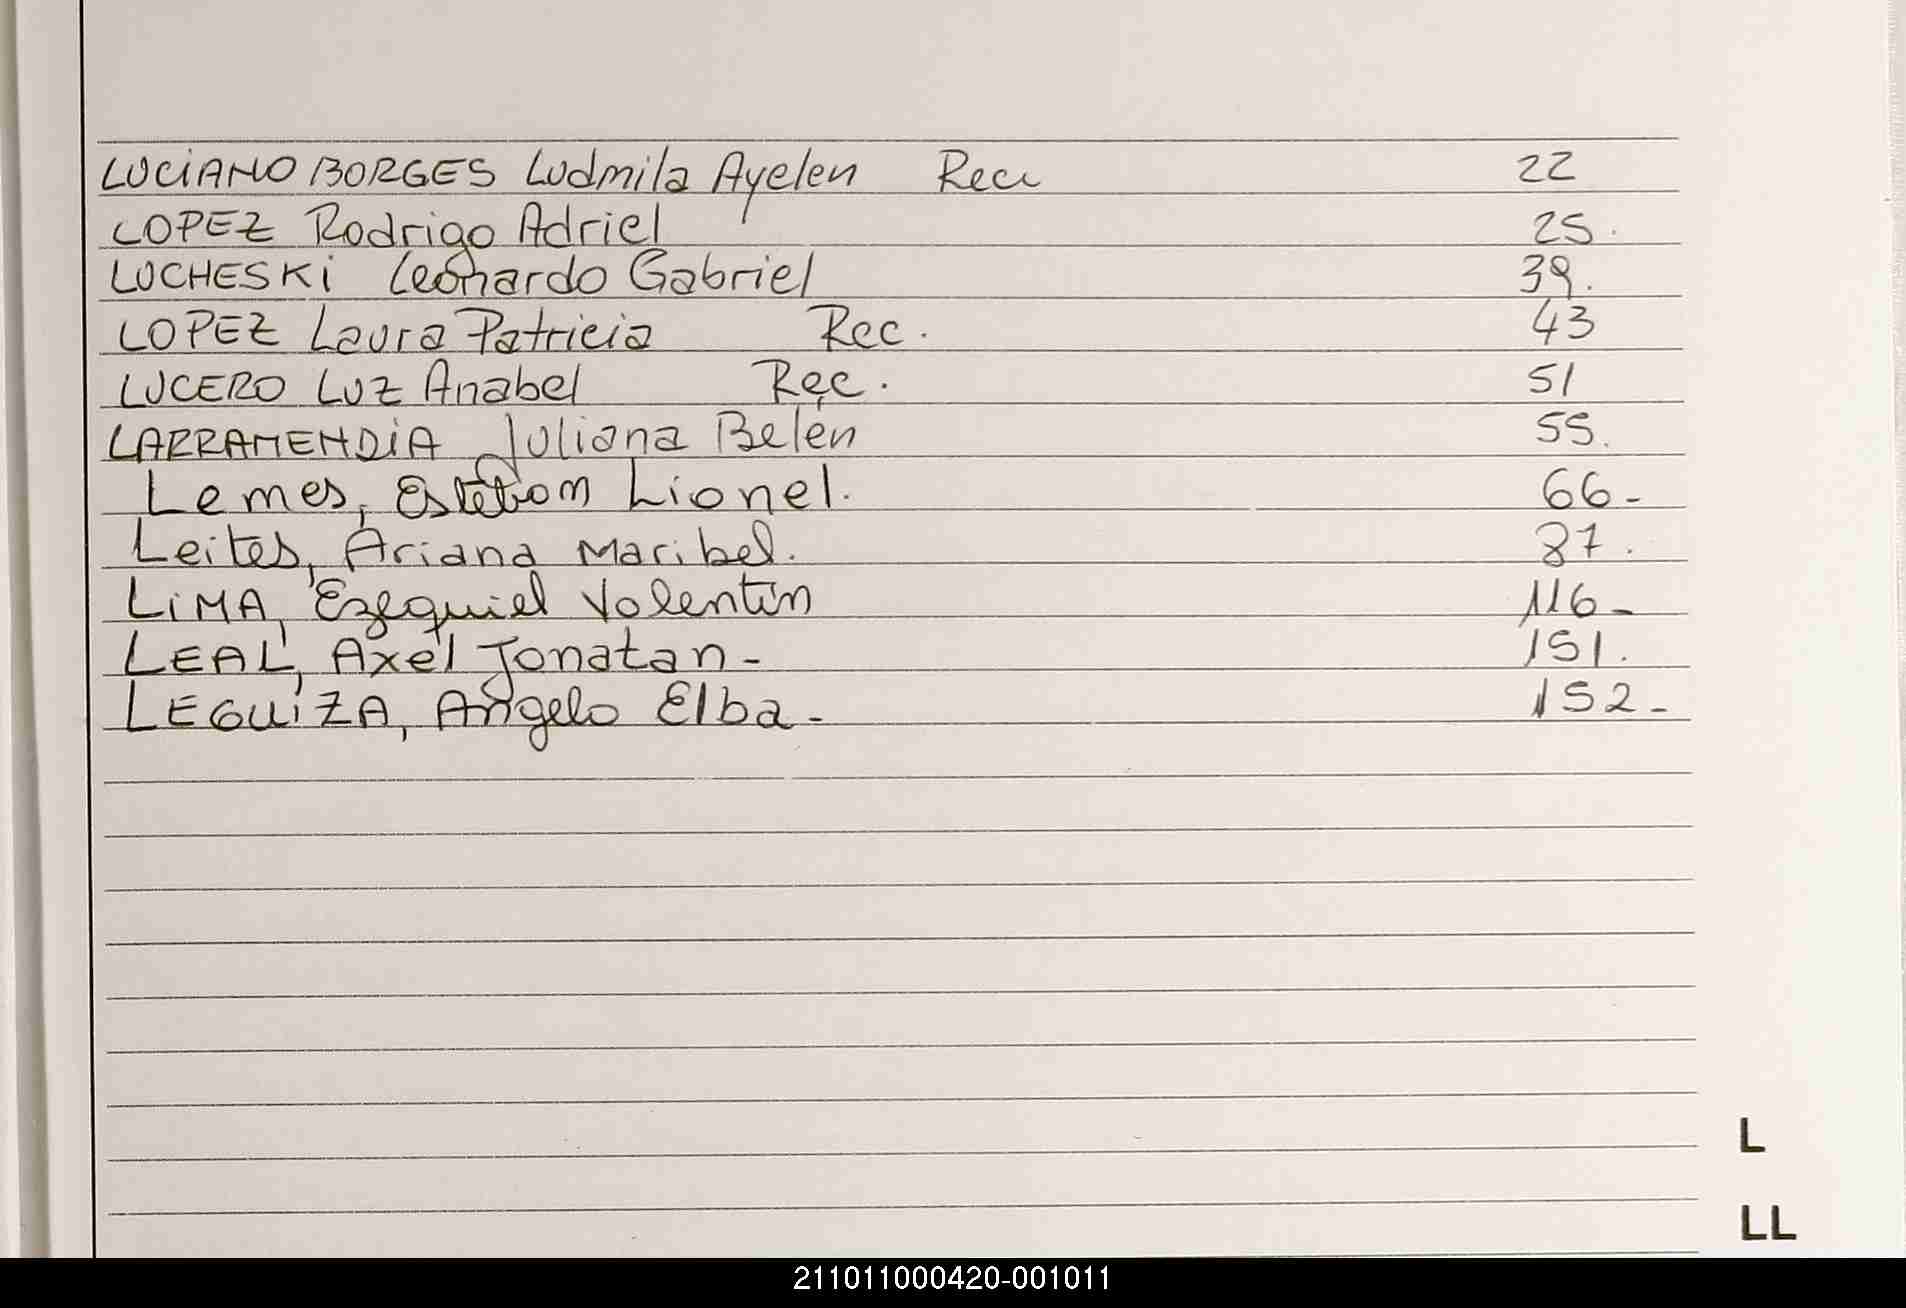 LUCiANO BORGES Ludmila Ayelen Rec 22
LOPEZ Rodrigo Adriel 25.
LUCHESKi Leonardo Gabriel 39.
LOPEZ Laura Patricia Rec. 43
LUCERO LUZ Anabel Rec. 51
LARRAMENDiA Juliana Belén 55.
Lemes, Esteban Lionel. 66-
Leites, Ariana Maribel. 87.
LiMA, Ezequiel Valentin 116-
LEAL, Axel Jonatan- 151.
LEGUiZA, Angelo Elba- 152-
L
LL
211011000420-001011